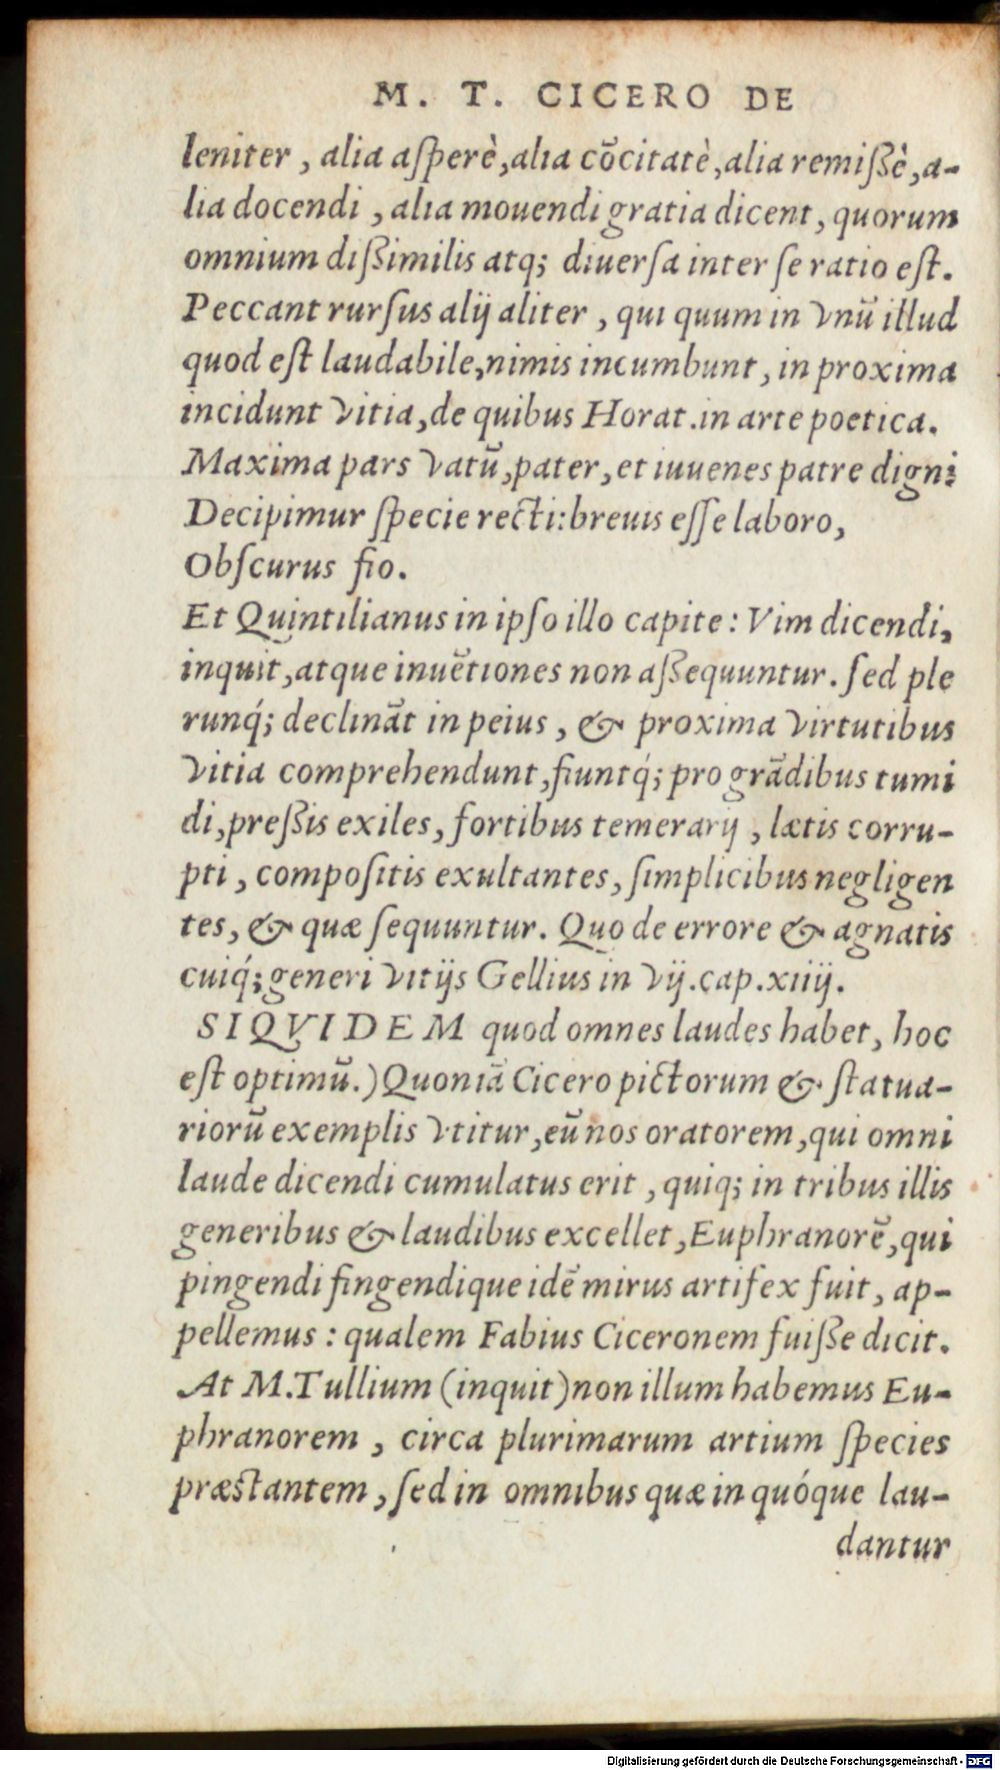 M. T. CICERO DE
leniter, alia aſperè, alia cōcitatè, alia remiſsè, a-
lia docendi, alia mouendi gratia dicent, quorum
omnium diſsimilis atq; diuerſa inter ſe ratio eſt.
Peccant rurſus alij aliter, qui quum in vnū illud
quod eſt laudabile, nimis incumbunt, in proxima
incidunt vitia, de quibus Horat. in arte poetica.
Maxima pars vatū, pater, et iuuenes patre digni
Decipimur ſpecie recti: breuis eſſe laboro,
Obſcurus fio.
Et Quintilianus in ipſo illo capite: Vim dicendi,
inquit, atque inuētiones non aſsequuntur. ſed ple
runq́; declināt in peius, & proxima virtutibus
vitia comprehendunt, fiuntq́; pro grādibus tumi
di, preſsis exiles, fortibus temerarij, lætis corru-
pti, compoſitis exultantes, ſimplicibus negligen
tes, & quæ ſequuntur. Quo de errore & agnatis
cuiq́; generi vitijs Gellius in vij. cap. xiiij.
SIQVIDEM quod omnes laudes habet, hoc
eſt optimū.) Quoniā Cicero pictorum & ſtatua-
riorū exemplis vtitur, eū nos oratorem, qui omni
laude dicendi cumulatus erit, quiq; in tribus illis
generibus & laudibus excellet, Euphranorē, qui
pingendi fingendique idē mirus artifex fuit, ap-
pellemus: qualem Fabius Ciceronem fuiſse dicit.
At M. Tullium (inquit) non illum habemus Eu-
phranorem, circa plurimarum artium ſpecies
præſtantem, ſed in omnibus quæ in quóque lau-
dantur
Digitalisierung gefördert durch die Deutsche Forschungsgemeinschaft - DFG